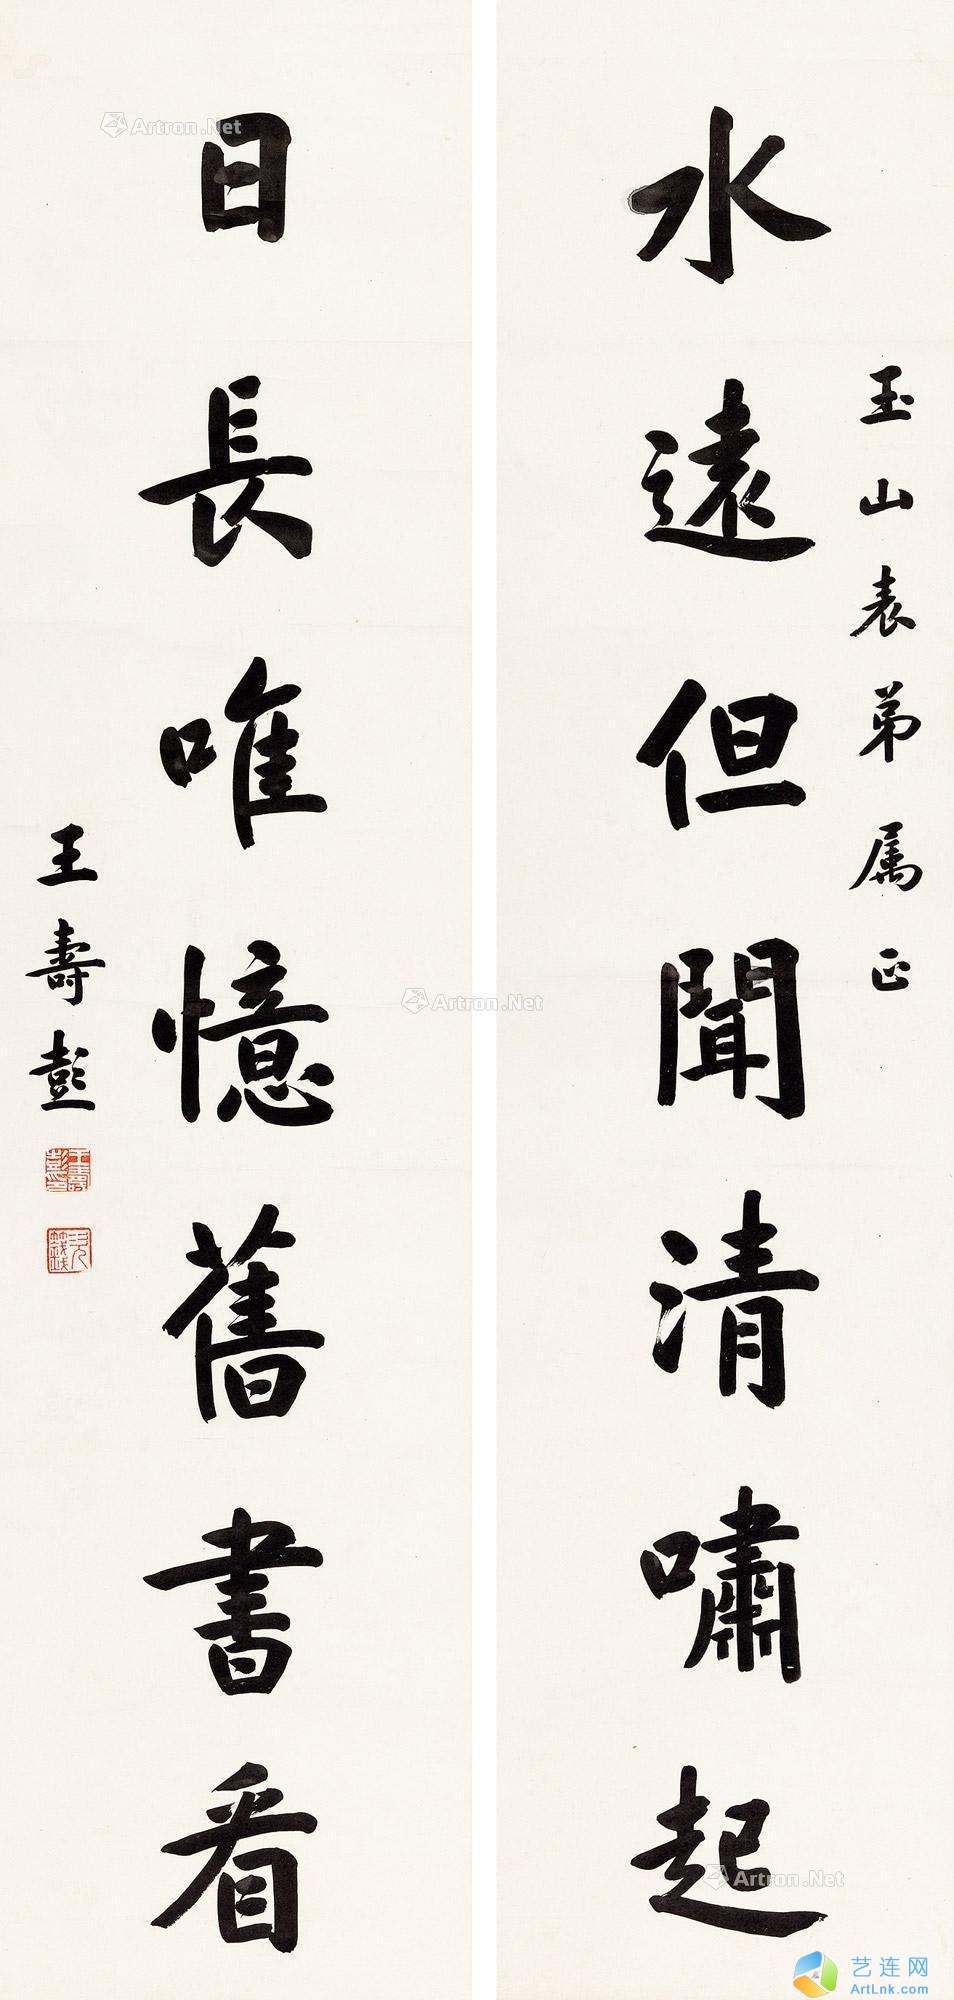 玉山表弟属正
水遠但聞清嘯起
日長唯憶舊書看
王壽彭
Artron.Net
Artron.Net
Artron.Net
艺连网
ArtLnk.com